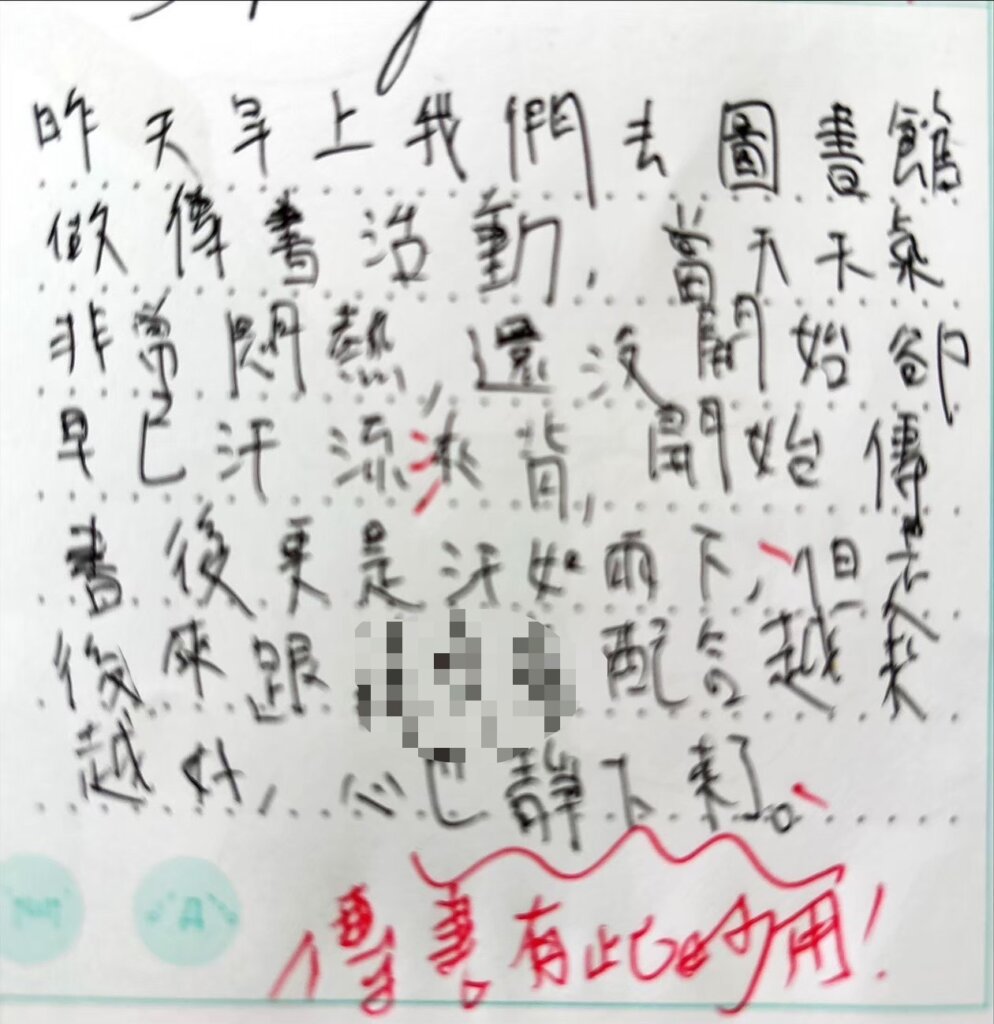 昨天早上我們去圖書館
做傳書活動,當天天氣
非常悶熱,還沒開始卻
早已汗流浹背,開始傳
書後更是汗如雨下,但
後來跟配合越來
越好,心也靜下來了。
傳書有此妙用!